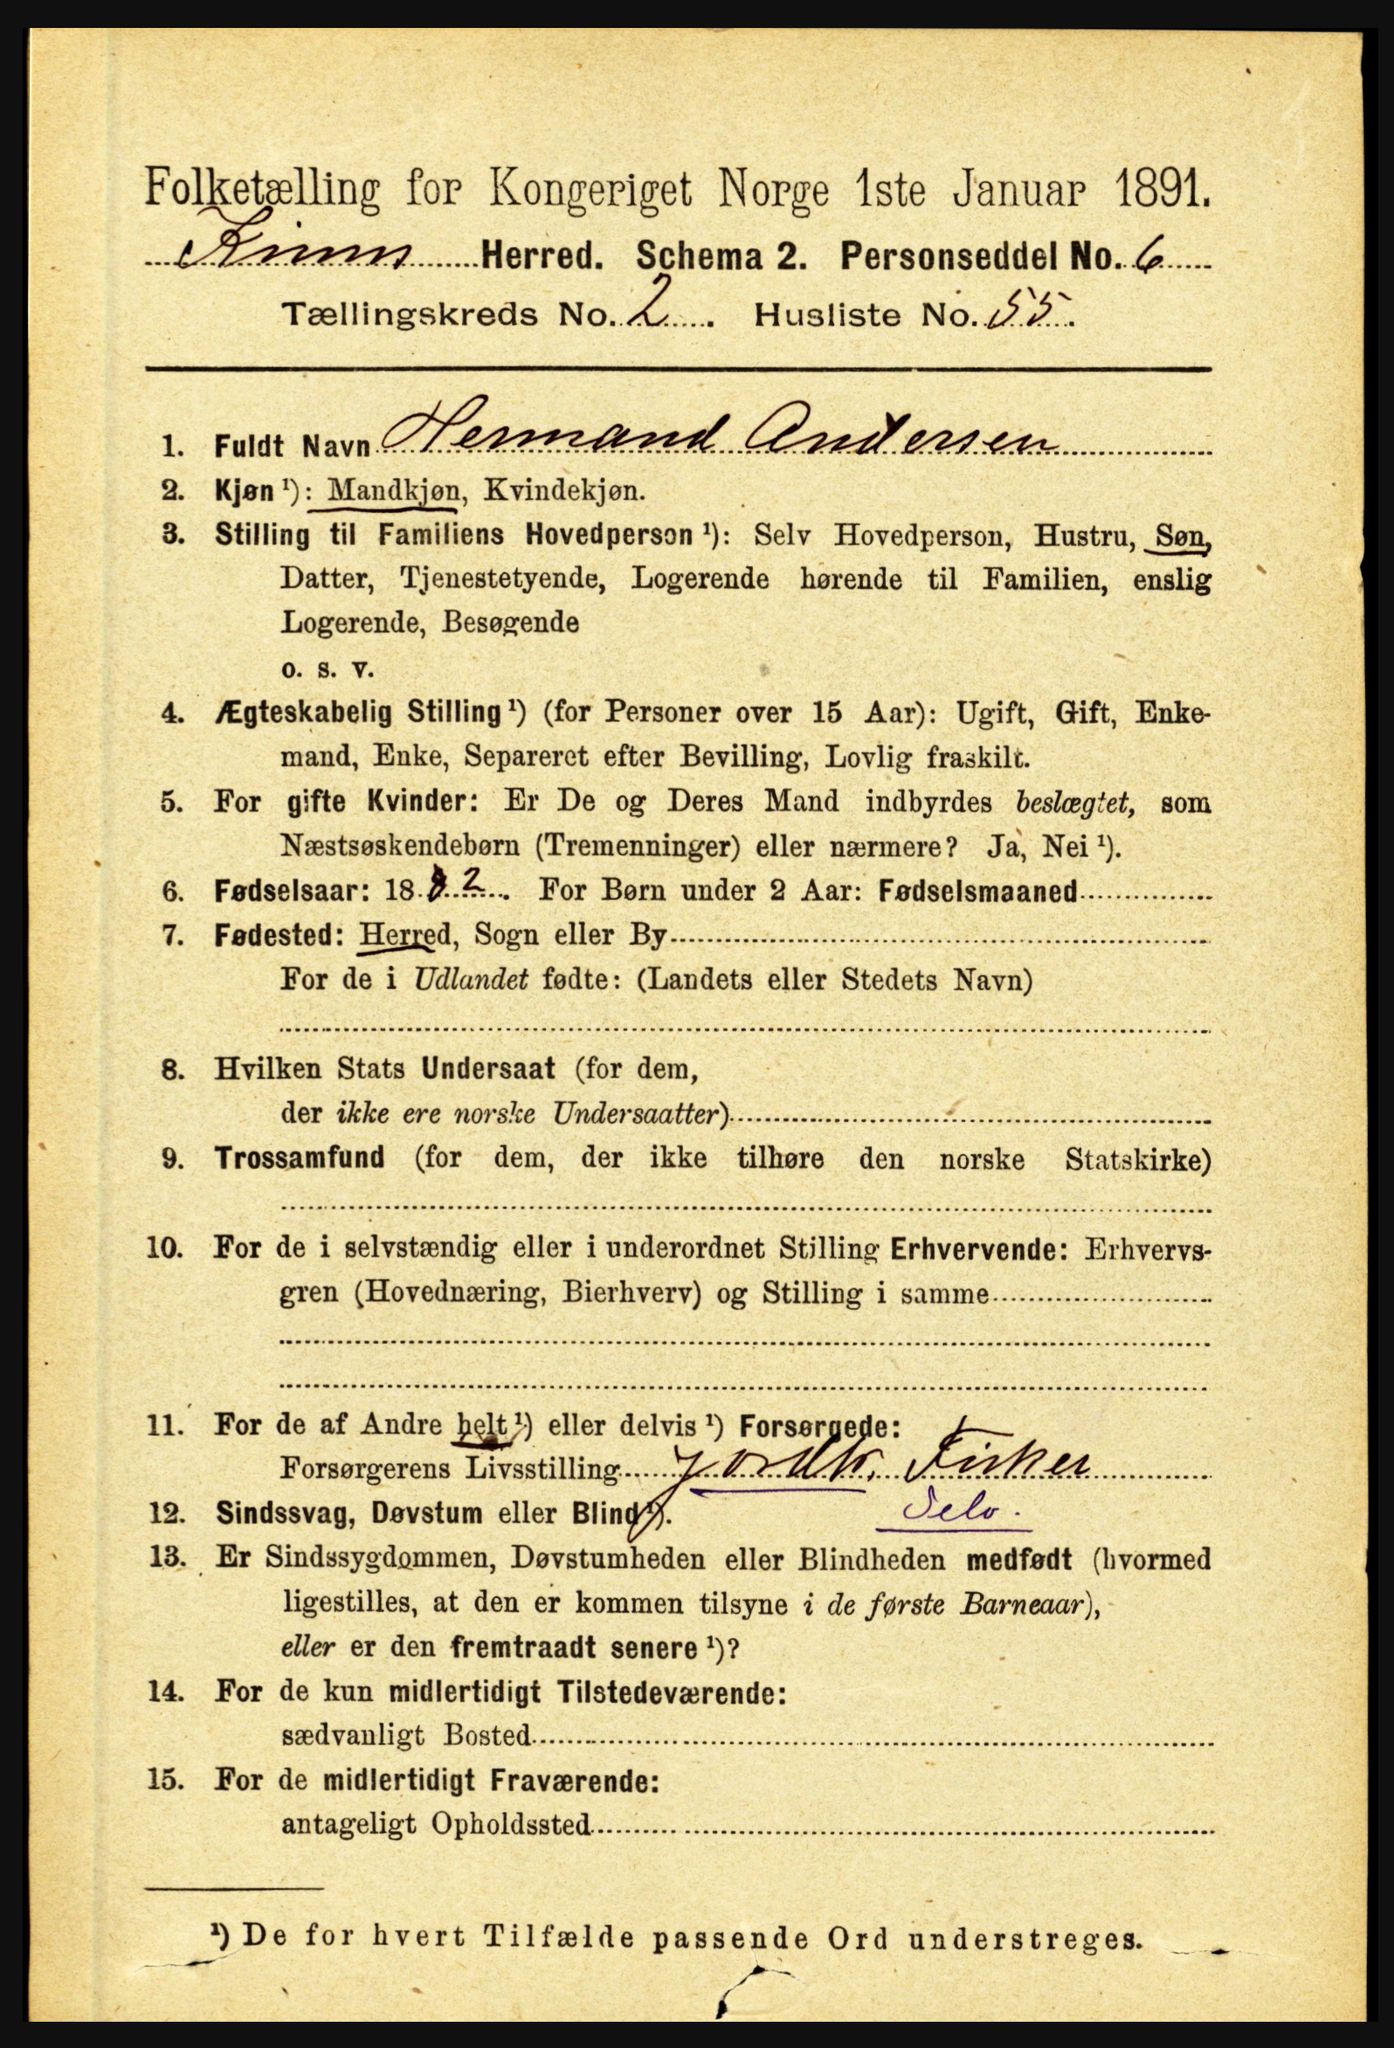 Folketælling for Kongeriget Norge 1ste Januar 1891.
Kinn Herred. Schema 2. Personseddel No. 6
Tællingskreds No. 2. Husliste No. 55.
1. Fuldt Navn Hermand Andersen
2. Kjøn ¹): Mandkjøn, Kvindekjøn.
3. Stilling til Familiens Hovedperson ¹): Selv Hovedperson, Hustru, Søn,
Datter, Tjenestetyende, Logerende hørende til Familien, enslig
Logerende, Besøgende
o. s. v.
4. Ægteskabelig Stilling ¹) (for Personer over 15 Aar): Ugift, Gift, Enke-
mand, Enke, Separeret efter Bevilling, Lovlig fraskilt.
5. For gifte Kvinder: Er De og Deres Mand indbyrdes beslægtet, som
Næstsøskendebørn (Tremenninger) eller nærmere? Ja, Nei ¹).
6. Fødselsaar: 1882. For Børn under 2 Aar: Fødselsmaaned
7. Fødested: Herred, Sogn eller By
For de i Udlandet fødte: (Landets eller Stedets Navn)
8. Hvilken Stats Undersaat (for dem,
der ikke ere norske Undersaatter)
9. Trossamfund (for dem, der ikke tilhøre den norske Statskirke)
10. For de i selvstændig eller i underordnet Stilling Erhvervende: Erhvervs-
gren (Hovednæring, Bierhverv) og Stilling i samme
11. For de af Andre helt ¹) eller delvis ¹) Forsørgede:
Forsørgerens Livsstilling Jordbr. Fisker
12. Sindssvag, Døvstum eller Blind ¹). Selv.
13. Er Sindssygdommen, Døvstumheden eller Blindheden medfødt (hvormed
ligestilles, at den er kommen tilsyne i de første Barneaar),
eller er den fremtraadt senere ¹)?
14. For de kun midlertidigt Tilstedeværende:
sædvanligt Bosted
15. For de midlertidigt Fraværende:
antageligt Opholdssted
¹) De for hvert Tilfælde passende Ord understreges.